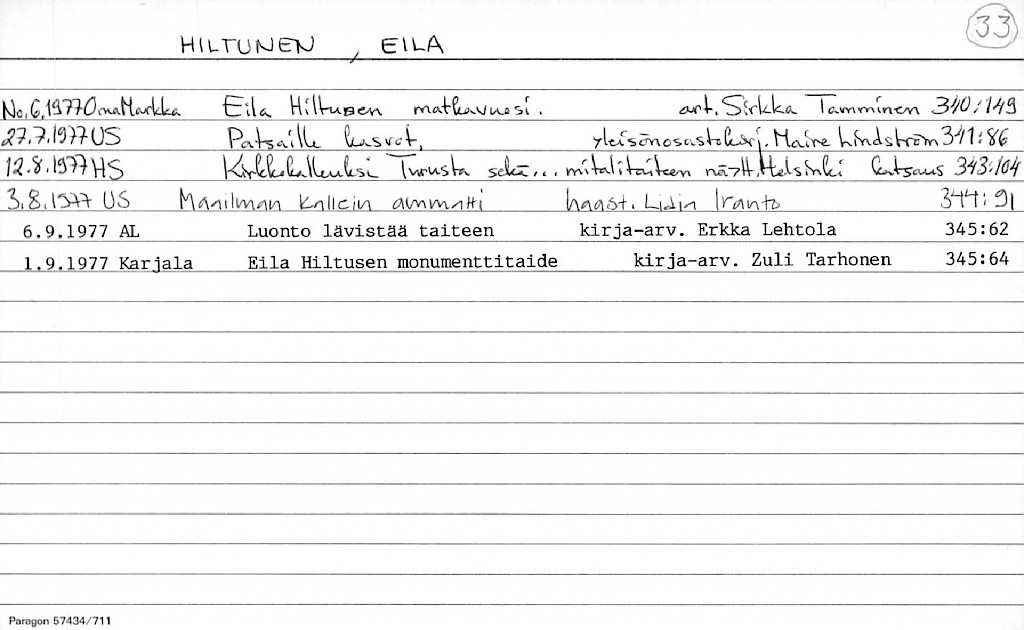 33
HILTUNEN, EILA
No.6.1977 OmaMarkka Eila Hiltusen matkavuosi. art. Sirkka Tamminen 340:149
27.7.1977 US Patsaille kasvot, yleisönosastokirj. Maire Lindström 341:86
12.8.1977 HS Turusta sekä... mitalitaiteen Helsinki katsaus 343:104
3.8.1977 US Maailman kallein ammatti haast. Iranto 344:91
6.9.1977 AL Luonto lävistää taiteen kirja-arv. Erkka Lehtola 345:62
1.9.1977 Karjala Eila Hiltusen monumenttitaide kirja-arv. Zuli Tarhonen 345:64
Paragon 57434/711